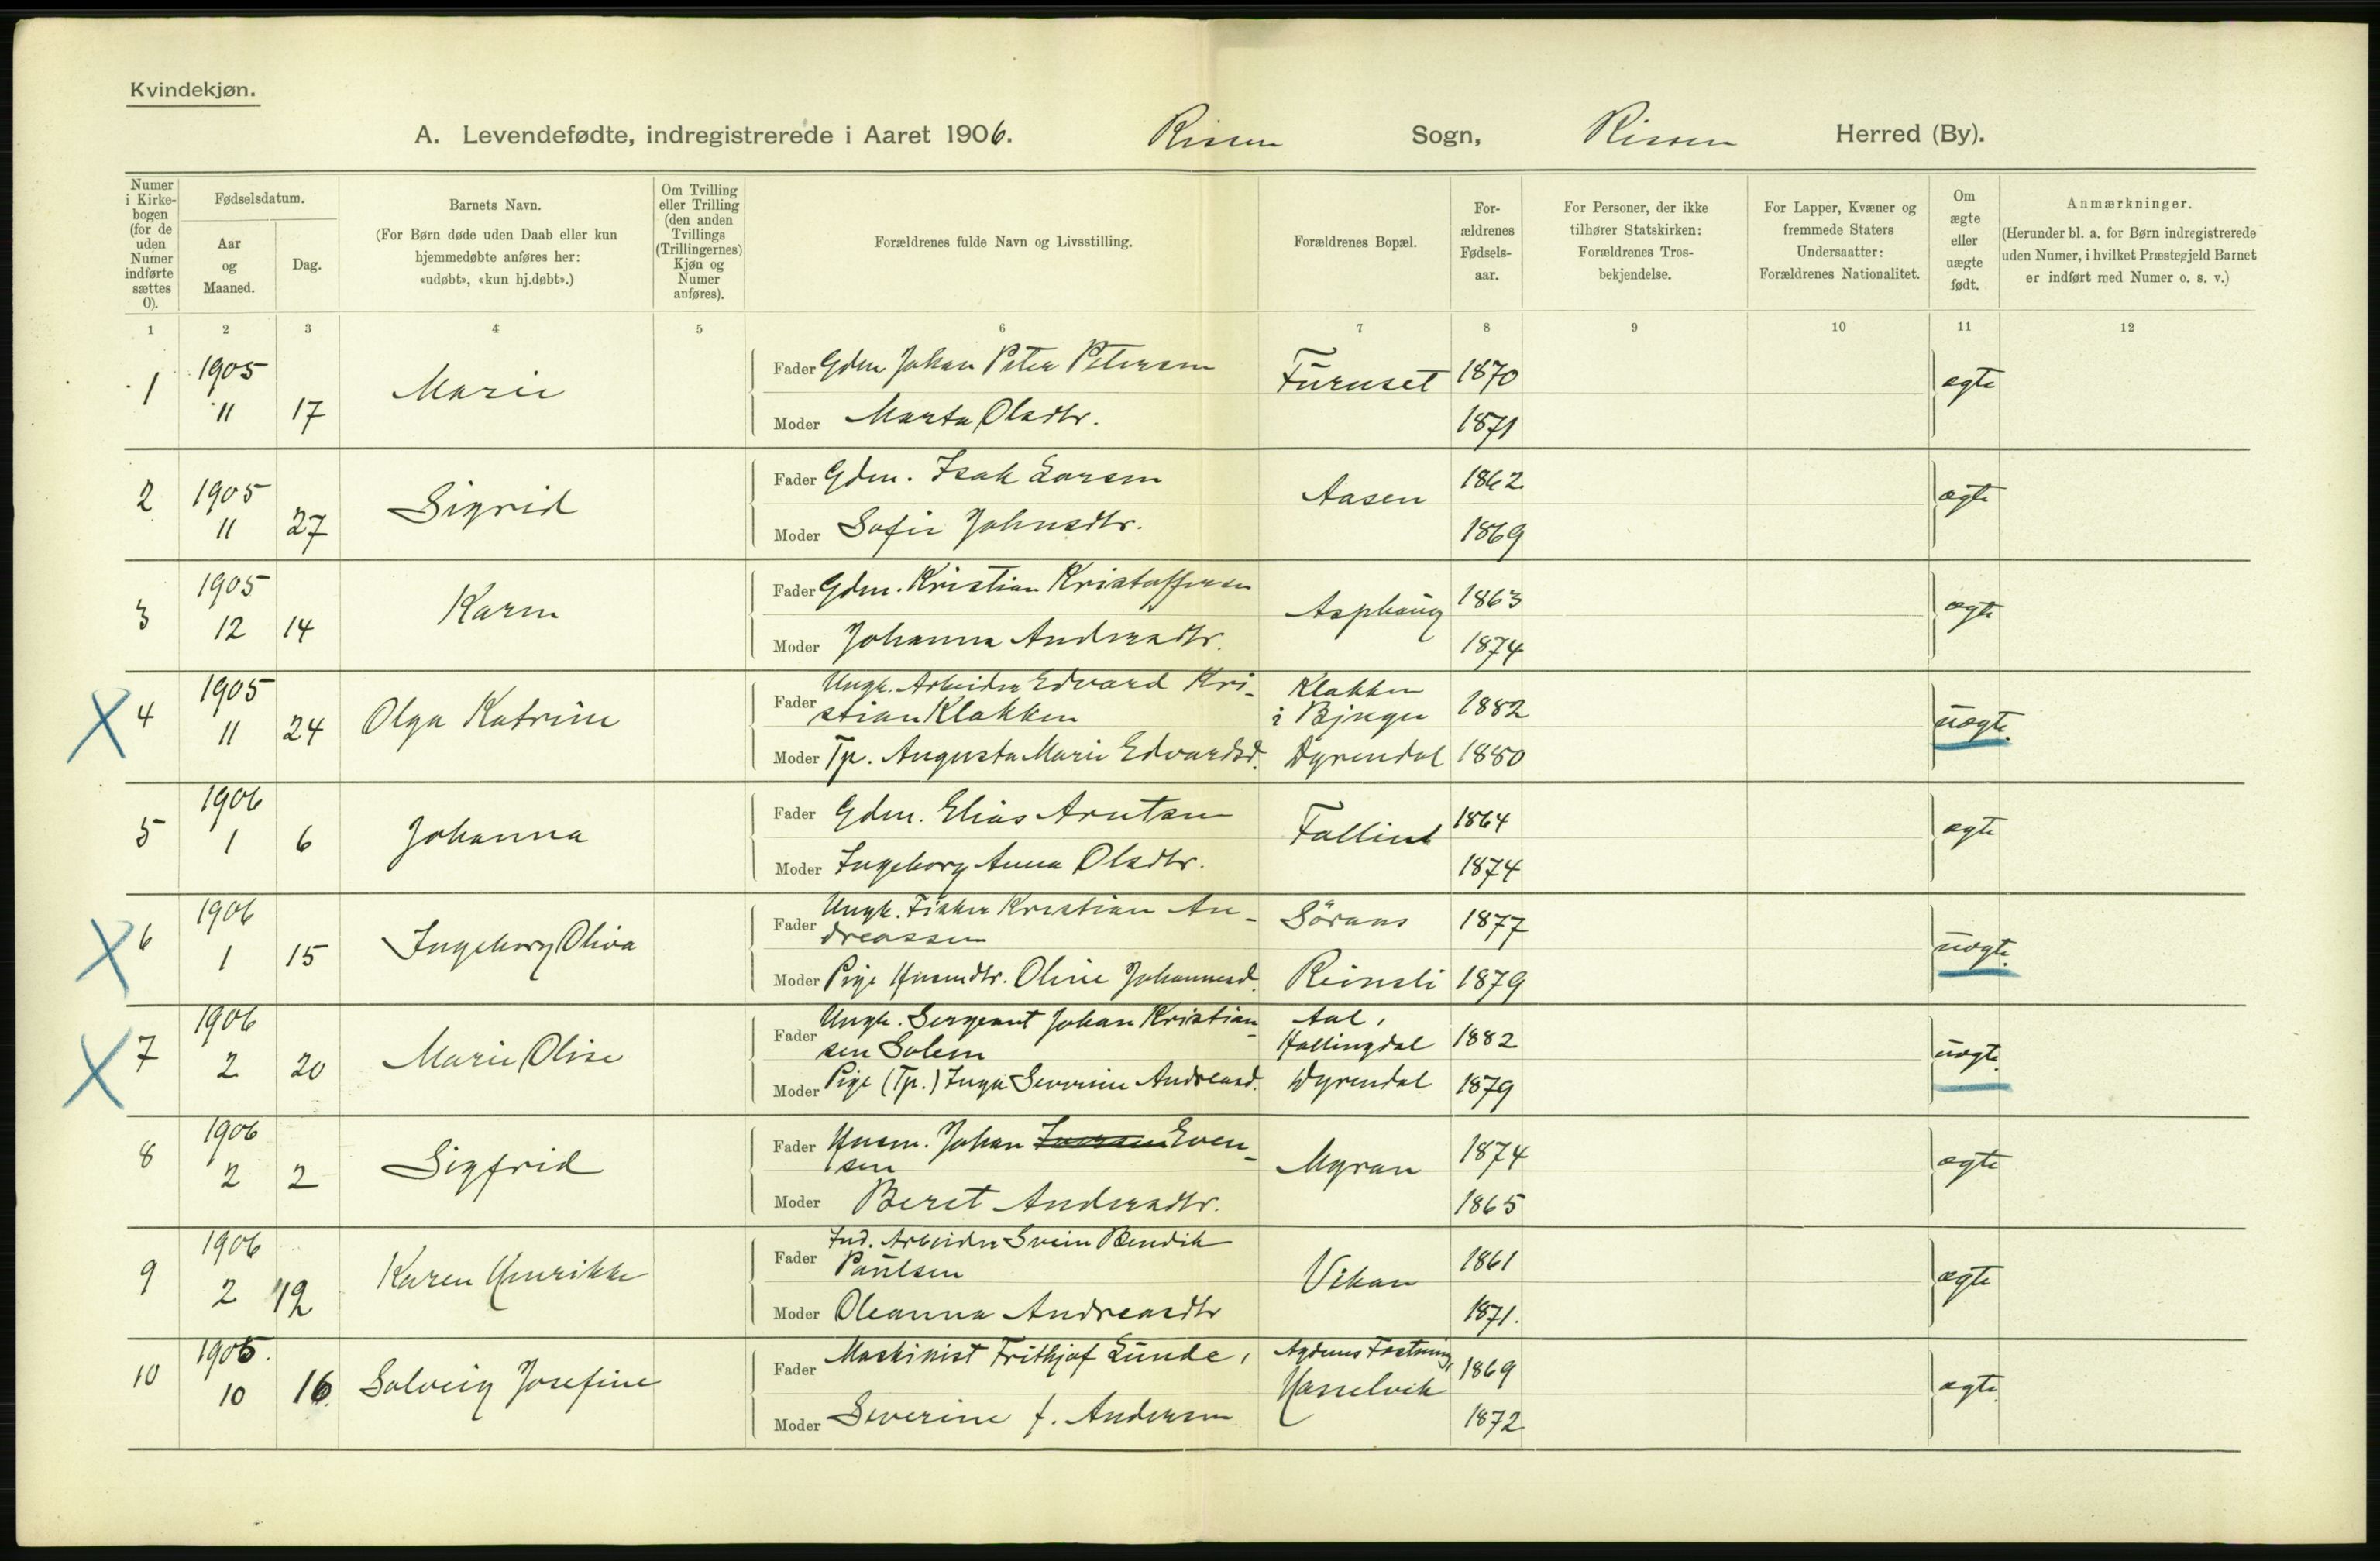 Kvindekjøn.
A. Levendefødte, indregistrerede i Aaret 1906. Rissen Sogn, Rissen Herred (By).
Numer i Kirkebogen (for de uden Numer indførte sættes 0).
Fødselsdatum.
Aar og Maaned.
Dag.
Barnets Navn.
(For Børn døde uden Daab eller kun hjemmedøbte anføres her: «udøbt», «kun hj.døbt».)
Om Tvilling eller Trilling (den anden Tvillings (Trillingernes) Kjøn og Numer anføres).
Forældrenes fulde Navn og Livsstilling.
Forældrenes Bopæl.
Forældrenes Fødselsaar.
For Personer, der ikke tilhører Statskirken: Forældrenes Trosbekjendelse.
For Lapper, Kvæner og fremmede Staters Undersaatter: Forældrenes Nationalitet.
Om ægte eller uægte født.
Anmærkninger.
(Herunder bl. a. for Børn indregistrerede uden Numer, i hvilket Præstegjeld Barnet er indført med Numer o. s. v.)
1 2 3 4 5 6 7 8 9 10 11 12
1 1905 11 17 Marie
Fader Gdm Johan Peter Petersen Furuset 1870 ægte
Moder Marta Olsdtr. 1871
2 1905 11 27 Sigrid
Fader Gdm. Isak Larsen Aasen 1862 ægte
Moder Sofie Johnsdtr. 1869
3 1905 12 14 Karen
Fader Gdm. Kristian Kristoffersen Asphaug 1863 ægte
Moder Johanna Andersdtr. 1874
X 4 1905 11 24 Olga Katrine
Fader Ungk. Arbeider Edvard Kri-
stian Klakken Klakken i Bjugn 1882 uægte.
Moder Tp. Augusta Marie Edvardsd. Dyrendal 1880
5 1906 1 6 Johanna
Fader Gdm. Elias Arntsen Fallin 1864 ægte
Moder Ingeborg Anna Olsdtr. 1874
X 6 1906 1 15 Ingeborg Oliva
Fader Ungk. Fisker Kristian An-
dreassen Söraas 1877 uægte.
Moder Pige Husmdtr. Oline Johannesd. Reinsli 1879
X 7 1906 2 20 Marie Olise
Fader Ungk. Sergeant Johan Kristian-
sen Solem Aal, Hallingdal 1882 uægte.
Moder Pige (Tp.) Inga Severine Andreasd. Dyrendal 1879
8 1906 2 2 Sigfrid
Fader Husm. Johan Iversen Even-
sen Myran 1874 ægte
Moder Beret Andersdtr. 1865
9 1906 2 12 Karen Henrikke
Fader Ind. Arbeider Svein Bendik
Paulsen Vikan 1861 ægte
Moder Oleanna Andreasdtr 1871.
10 1905. 10 16. Solveig Josefine
Fader Maskinist Frithjof Lunde, Agdenes Fæstning, Hasselvik 1869 ægte
Moder Severine f. Andersen 1872